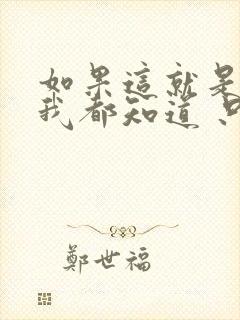 如果這就是
我都知道
鄭世福